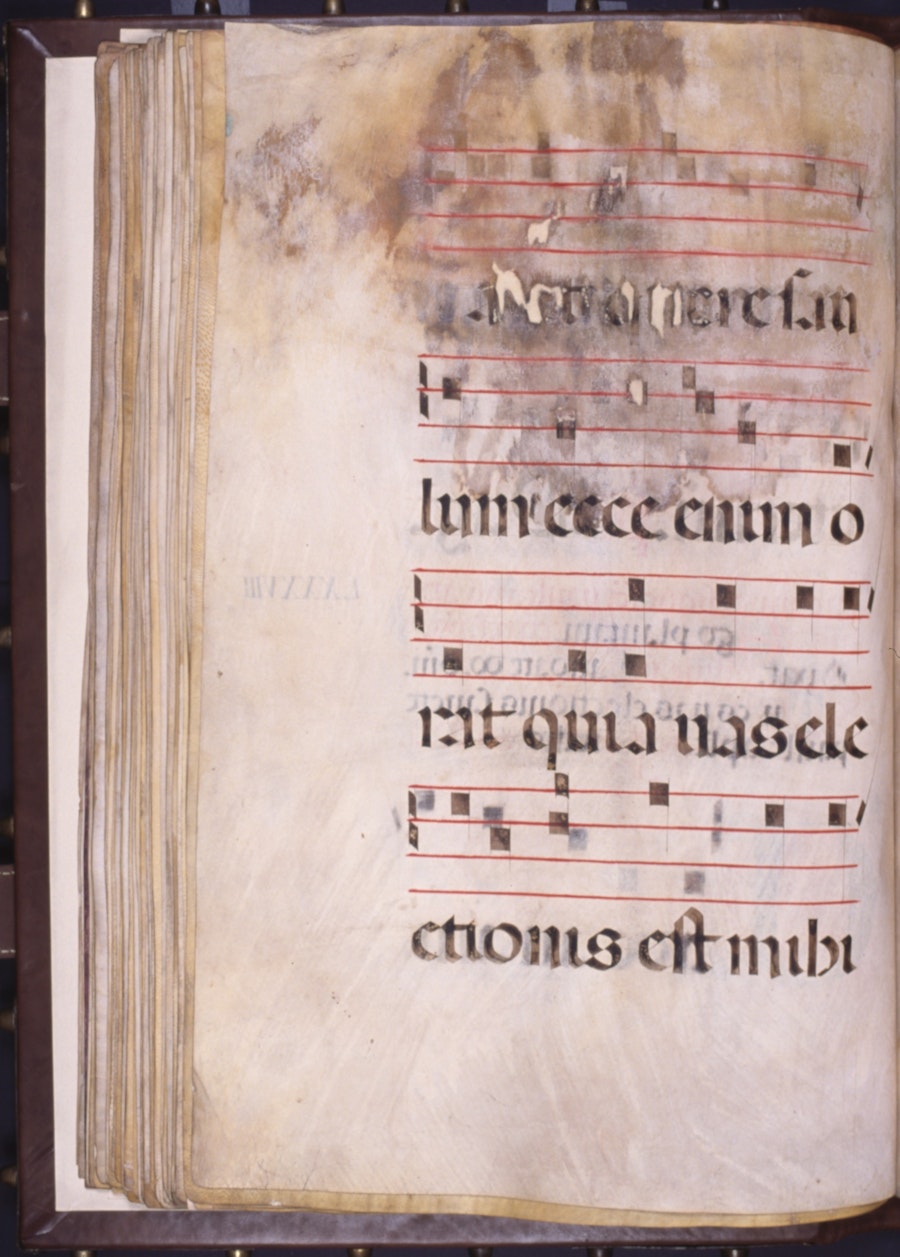 sau
lum ecce enim o
rat quia uas ele
ctionis est mihi